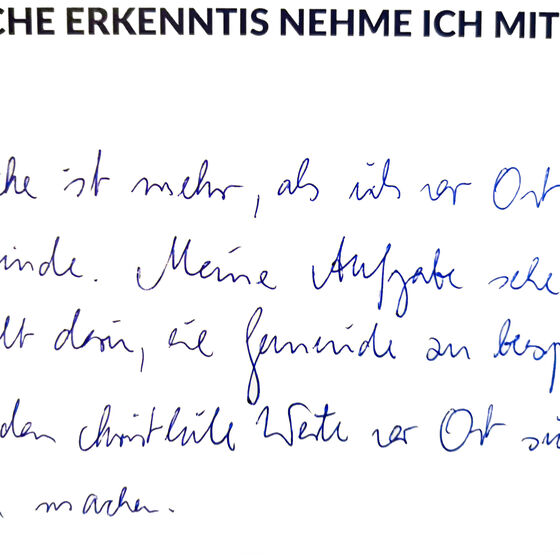 CHE ERKENNTIS NEHME ICH MIT
che ist mehr, als ich vor Ort
inde. Meine Aufgabe sehe
darin, die Gemeinde zu
christliche Werte vor Ort
machen.